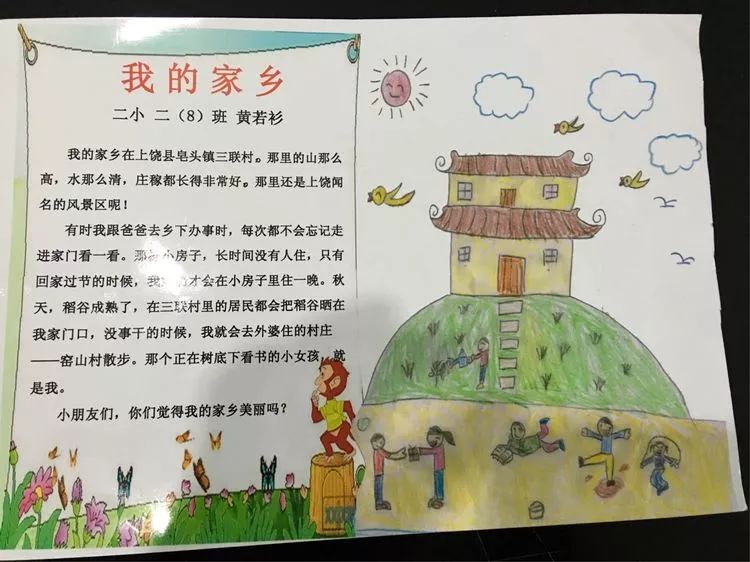 我的家乡
二小 二（8）班 黄若衫
我的家乡在上饶县皂头镇三联村。那里的山那么
高，水那么清，庄稼都长得非常好。那里还是上饶闻
名的风景区呢！
有时我跟爸爸去乡下办事时，每次都不会忘记走
进家门看一看。那 小房子，长时间没有人住，只有
回家过节的时候，我 才会在小房子里住一晚。秋
天，稻谷成熟了，在三联村里的居民都会把稻谷晒在
我家门口，没事干的时候，我就会去外婆住的村庄
——窑山村散步。那个正在树底下看书的小女孩，就
是我。
小朋友们，你们觉得我的家乡美丽吗？